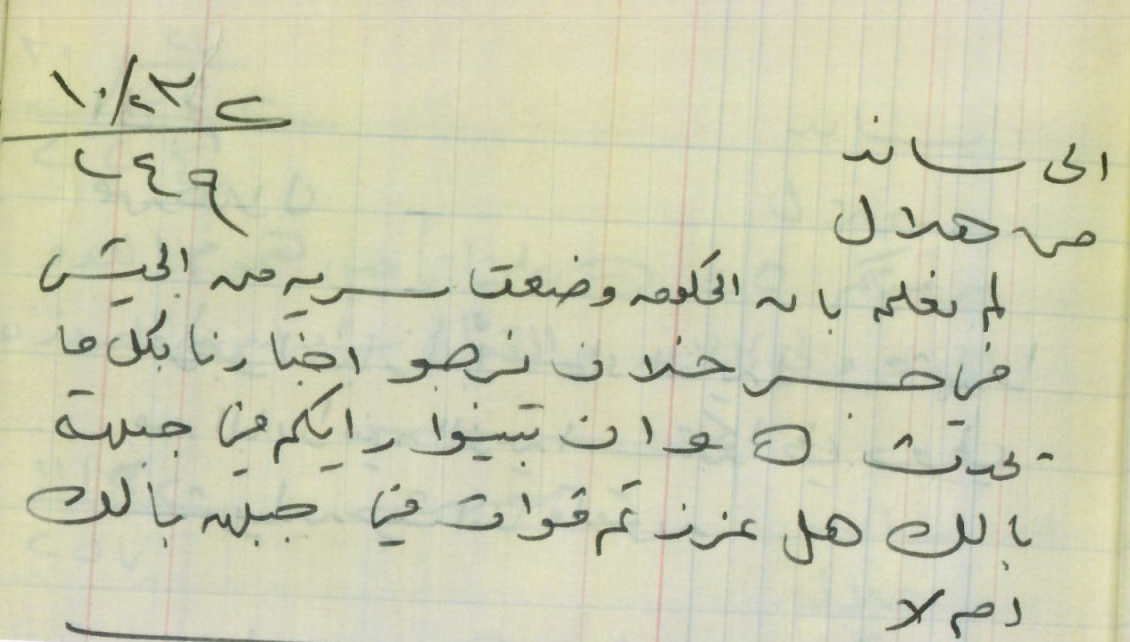 الى ساند
من هلال
لم نعلم بان الحكومه وضعت سريه من الجيش
في جسر خلان نرجو اخبارنا بكل ما
يحدث و ان تبينوا رايكم في جبهة
بالك هل عززتم قوات في جبهه بالك
ام لا